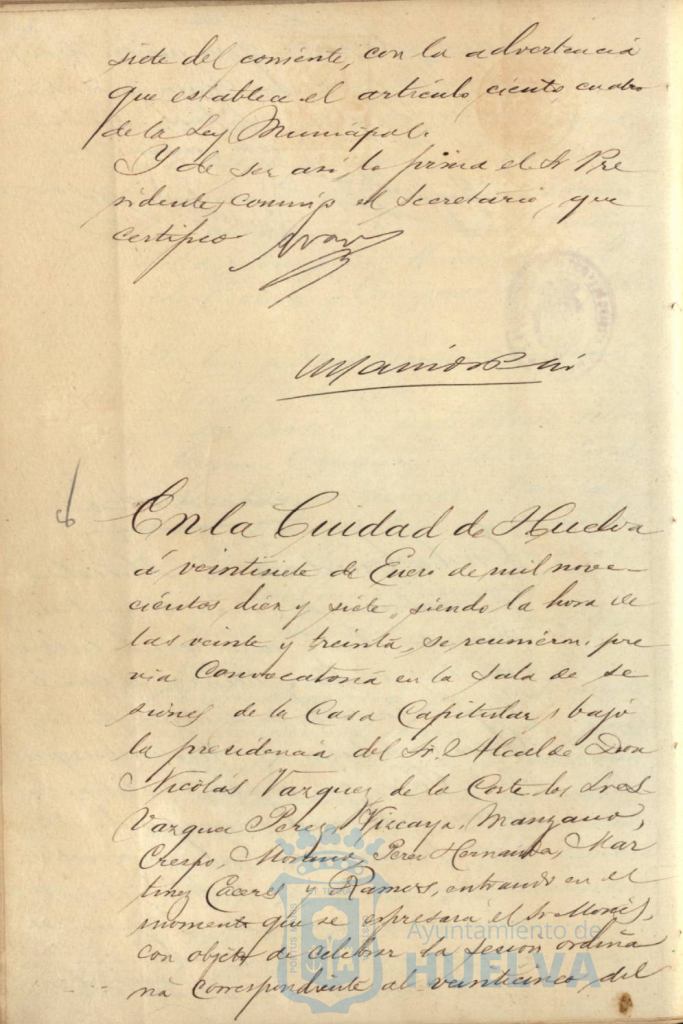 siete del corriente, con la advertencia
que establece el artículo ciento cuatro
de la Ley Municipal.
Y de ser así lo firma el Sr. Pre
sidente, conmigo el Secretario, que
certifico
En la Ciudad de Huelva
á veintisiete de Enero de mil nove-
cientos diez y siete, siendo la hora de
las veinte y treinta, se reunieron, pre
via convocatoria en la Sala de se
siones de la Casa Capitular, bajo
la presidencia del Sr. Alcalde Don
Nicolás Vazquez de la Corte los Sres
Vazquez Perez, Vizcaya, Manzano,
Crespo, Moreno, Perez Hernandez, Mar
tinez Caceres y Ramos, entrando en el
momento que se expresará el Sr.
con objeto de celebrar la sesion ordina
ria correspondiente al veinticinco del
Ayuntamiento de
HUELVA